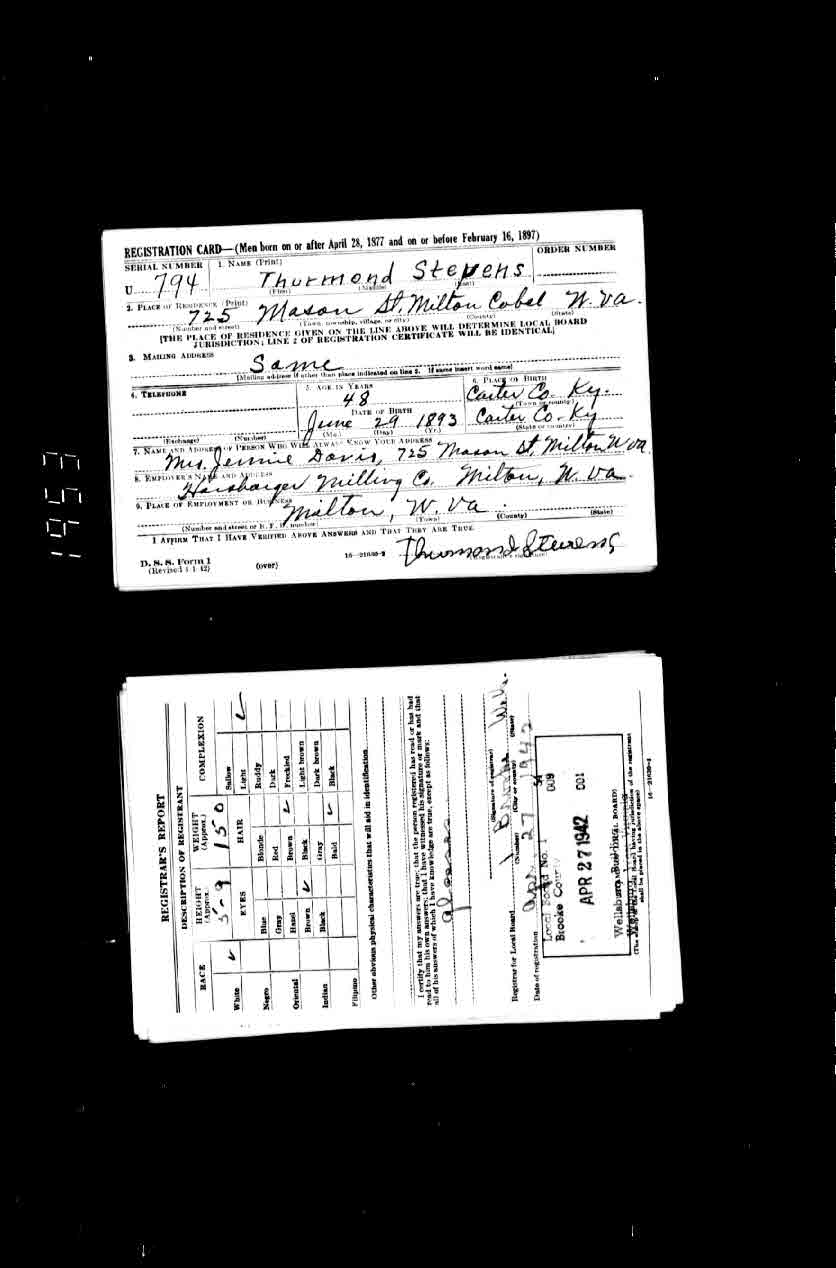 REGISTRATION CARD—(Men born on or after April 28, 1877 and on or before February 16, 1897)
SERIAL NUMBER 1. NAME (Print) ORDER NUMBER
U 794 Thurmond Stevens
(First) (Middle) (Last)
2. PLACE OF RESIDENCE (Print)
725 Mason St. Milton Cabel W. Va.
(Number and street) (Town, township, village, or city) (County) (State)
[THE PLACE OF RESIDENCE GIVEN ON THE LINE ABOVE WILL DETERMINE LOCAL BOARD
JURISDICTION; LINE 2 OF REGISTRATION CERTIFICATE WILL BE IDENTICAL]
3. MAILING ADDRESS
Same
[Mailing address if other than place indicated on line 2. If same insert word same]
4. TELEPHONE 5. AGE IN YEARS 6. PLACE OF BIRTH
48 Carter Co. Ky.
DATE OF BIRTH (Town or county)
June 29 1893 Carter Co. Ky
(Exchange) (Number) (Mo.) (Day) (Yr.) (State or country)
7. NAME AND ADDRESS OF PERSON WHO WILL ALWAYS KNOW YOUR ADDRESS
Mrs. Jennie Davis, 725 Mason St. Milton W Va.
8. EMPLOYER'S NAME AND ADDRESS
Harshbarger Milling Co. Milton, W. Va.
9. PLACE OF EMPLOYMENT OR BUSINESS
Milton, W. Va.
(Number and street or R. F. D. number) (Town) (County) (State)
I AFFIRM THAT I HAVE VERIFIED ABOVE ANSWERS AND THAT THEY ARE TRUE.
Thurmond Stevens
D. S. S. Form 1 16—21630-2
(Revised 4-1-42) (over)
1953
REGISTRAR'S REPORT
DESCRIPTION OF REGISTRANT
RACE HEIGHT (Approx.) WEIGHT (Approx.) COMPLEXION
5-9 150
EYES HAIR
White ✓ Sallow
Light ✓
Negro Blue Blonde Ruddy
Gray Red Dark
Oriental Hazel Brown ✓ Freckled
Brown ✓ Black Light brown
Indian Black Gray ✓ Dark brown
Bald Black
Filipino
Other obvious physical characteristics that will aid in identification
I certify that my answers are true; that the person registered has read or has had
read to him his own answers; that I have witnessed his signature or mark and that
all of his answers of which I have knowledge are true, except as follows:
(Signature of registrar)
Registrar for Local Board 1 Brooke W.Va.
(Number) (City or county) (State)
Date of registration Apr 27 1942
Local Board No. 1 54
Brooke County 009
APR 27 1942 001
(The stamp of the Local Board having jurisdiction of the registrant
shall be placed in the above space)
16—21630-2